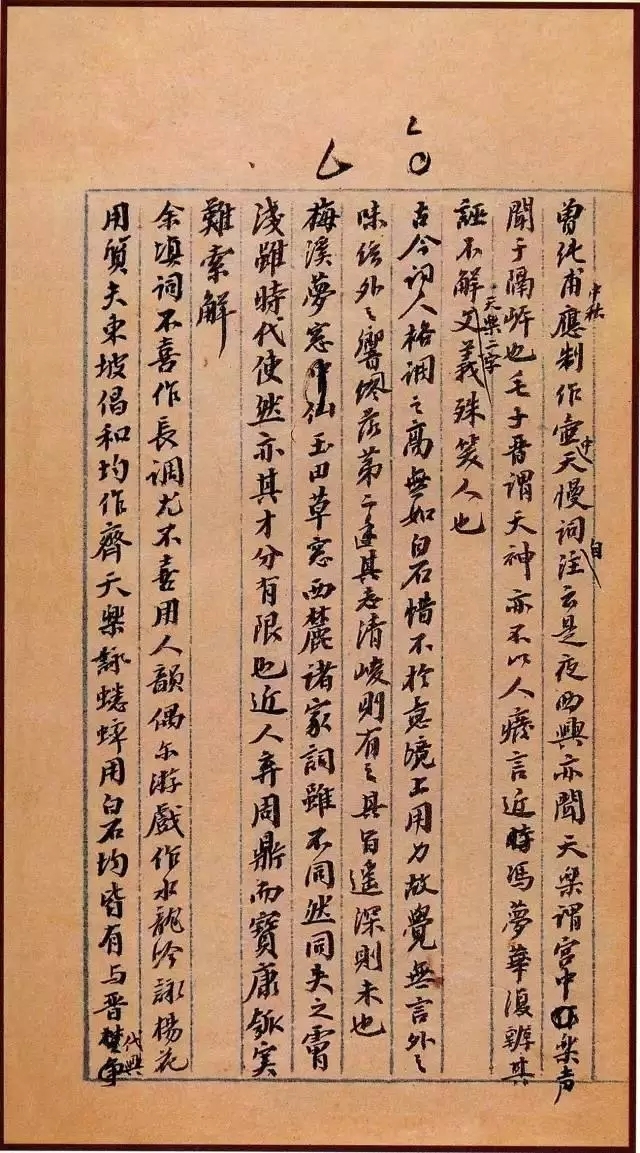 曾純甫中秋應制作壺中天慢詞自注云是夜西興亦聞天樂謂宮中樂声
聞于隔岸也毛子晋謂天神亦不以人癈言近馮夢華復辨其
誣不解天樂二字文義殊笑人也
古今詞人格調之高無如白石惜不於意境上用力故覺無言外之
味弦外之響終落第二其志清峻則有之其旨遥深則未也
梅溪夢窓中仙玉田草窓西麓諸家詞雖不同然同失之膚
淺雖時代使然亦其才分有限也近人弃周鼎而寶康瓠実
難索解
余填詞不喜作長調尤不喜用人韻偶尔游戲作水龍吟詠楊花
用質夫東坡倡和均作齊天樂詠蟋蟀用白石均皆有与晋代興